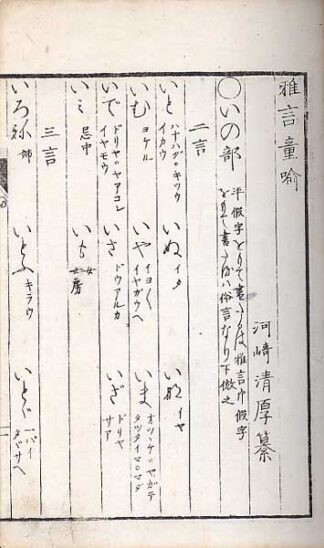 雅言童喩
河﨑清厚纂
○いの部
平假字とりて書るは雅言片假字
とりて書るは俗言なり下傚之
二言
いと ハナハダ キツウ イカウ
いぬ イタ
いむ ヨケル
いや イヨ〱 イヤガウヘ
いま オツヽケ ヤガテ タツタイマ マダ
いで ドリヤ ヤアコレ イヤモウ
いさ ドウアルカ
いざ ドリヤ サア
いミ 忌中
いも 女房
三言
いろね 姉
いとふ キラウ
いとゞ 一バイ